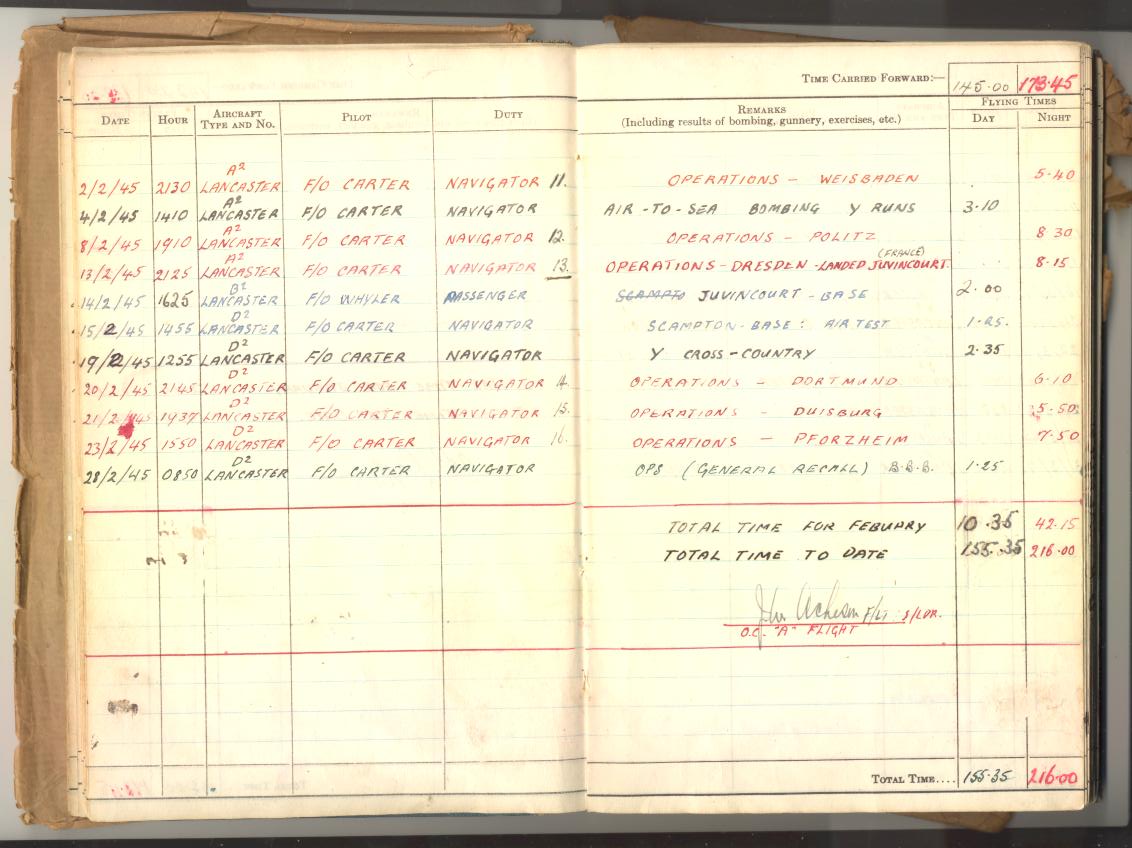 TIME CARRIED FORWARD:— 145.00 173.45
DATE HOUR AIRCRAFT TYPE AND NO. PILOT DUTY REMARKS (Including results of bombing, gunnery, exercises, etc.) FLYING TIMES DAY NIGHT
2/2/45 2130 A2 LANCASTER F/O CARTER NAVIGATOR 11. OPERATIONS - WEISBADEN 5.40
4/2/45 1410 A2 LANCASTER F/O CARTER NAVIGATOR AIR-TO-SEA BOMBING Y RUNS 3.10
8/2/45 1910 A2 LANCASTER F/O CARTER NAVIGATOR 12. OPERATIONS - POLITZ 8 30
13/2/45 2125 A2 LANCASTER F/O CARTER NAVIGATOR 13. OPERATIONS - DRESDEN - LANDED JUVINCOURT. (FRANCE) 8.15
14/2/45 1625 B2 LANCASTER F/O WHYLER PASSENGER SCAMPTO JUVINCOURT - BASE 2.00
15/2/45 1455 D2 LANCASTER F/O CARTER NAVIGATOR SCAMPTON - BASE : AIR TEST 1.25.
19/2/45 1255 D2 LANCASTER F/O CARTER NAVIGATOR Y CROSS-COUNTRY 2.35
20/2/45 2145 D2 LANCASTER F/O CARTER NAVIGATOR 14. OPERATIONS - DORTMUND 6.10
21/2/45 1937 D2 LANCASTER F/O CARTER NAVIGATOR 15. OPERATIONS - DUISBURG 5.50
23/2/45 1550 D2 LANCASTER F/O CARTER NAVIGATOR 16. OPERATIONS - PFORZHEIM 7.50
28/2/45 0850 D2 LANCASTER F/O CARTER NAVIGATOR OPS (GENERAL RECALL) B.B.B. 1.25
TOTAL TIME FOR FEBUARY 10.35 42.15
TOTAL TIME TO DATE 155.35 216.00
John Acheson F/LT S/LDR.
O.C. "A" FLIGHT
TOTAL TIME.... 155.35 216.00